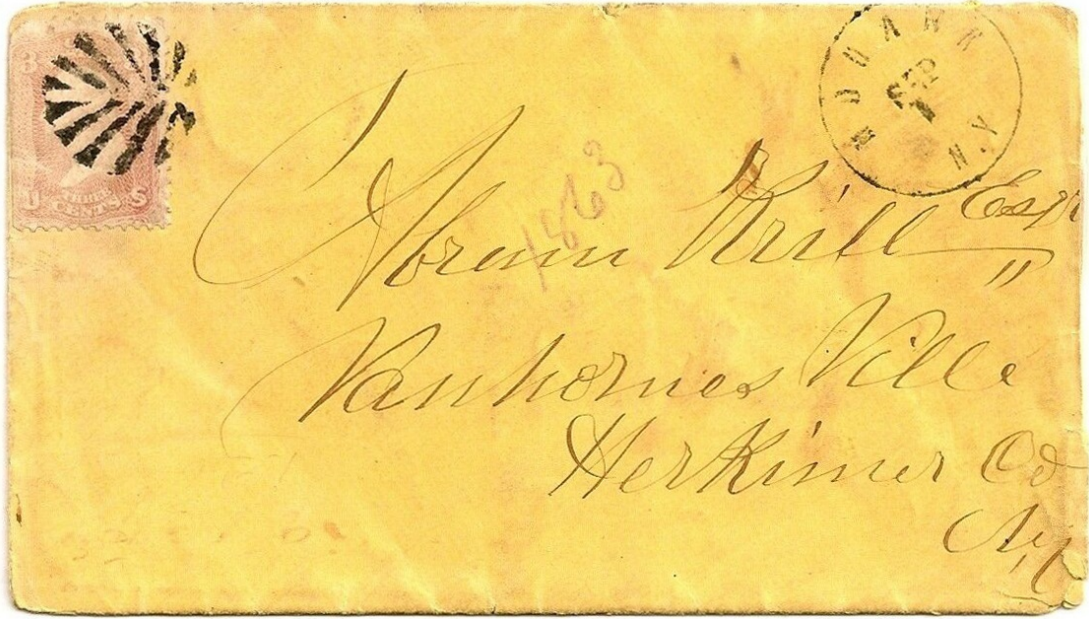 3
U S
CENTS
MOHAWK
SEP
1
N.Y
1863
Abram Krill Esqr
Vanhornes Ville
Herkimer Co
Ny